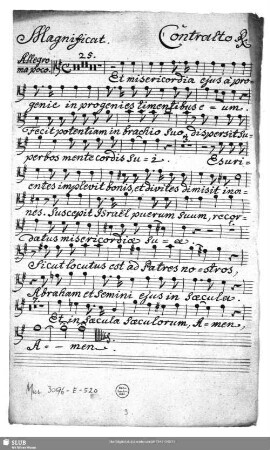 Magnificat. Contralto
Allegro
ma poco. 25.
Et misericordia ejus à pro-
genie in progenies timentibus e = um.
Fecit potentiam in brachio suo, dispersit su-
perbos mente cordis su = i. Esuri-
entes implevit bonis, et divites dimisit ina-
nes. Suscepit Israel puerum suum, recor-
datus misericordiæ su = æ.
Sicut locutus est ad Patres no = stros,
Abraham et semini ejus in sæcula.
Et in sæcula sæculorum, A = men,
A = - men.
Mus. 3096-E-520
3
SLUB